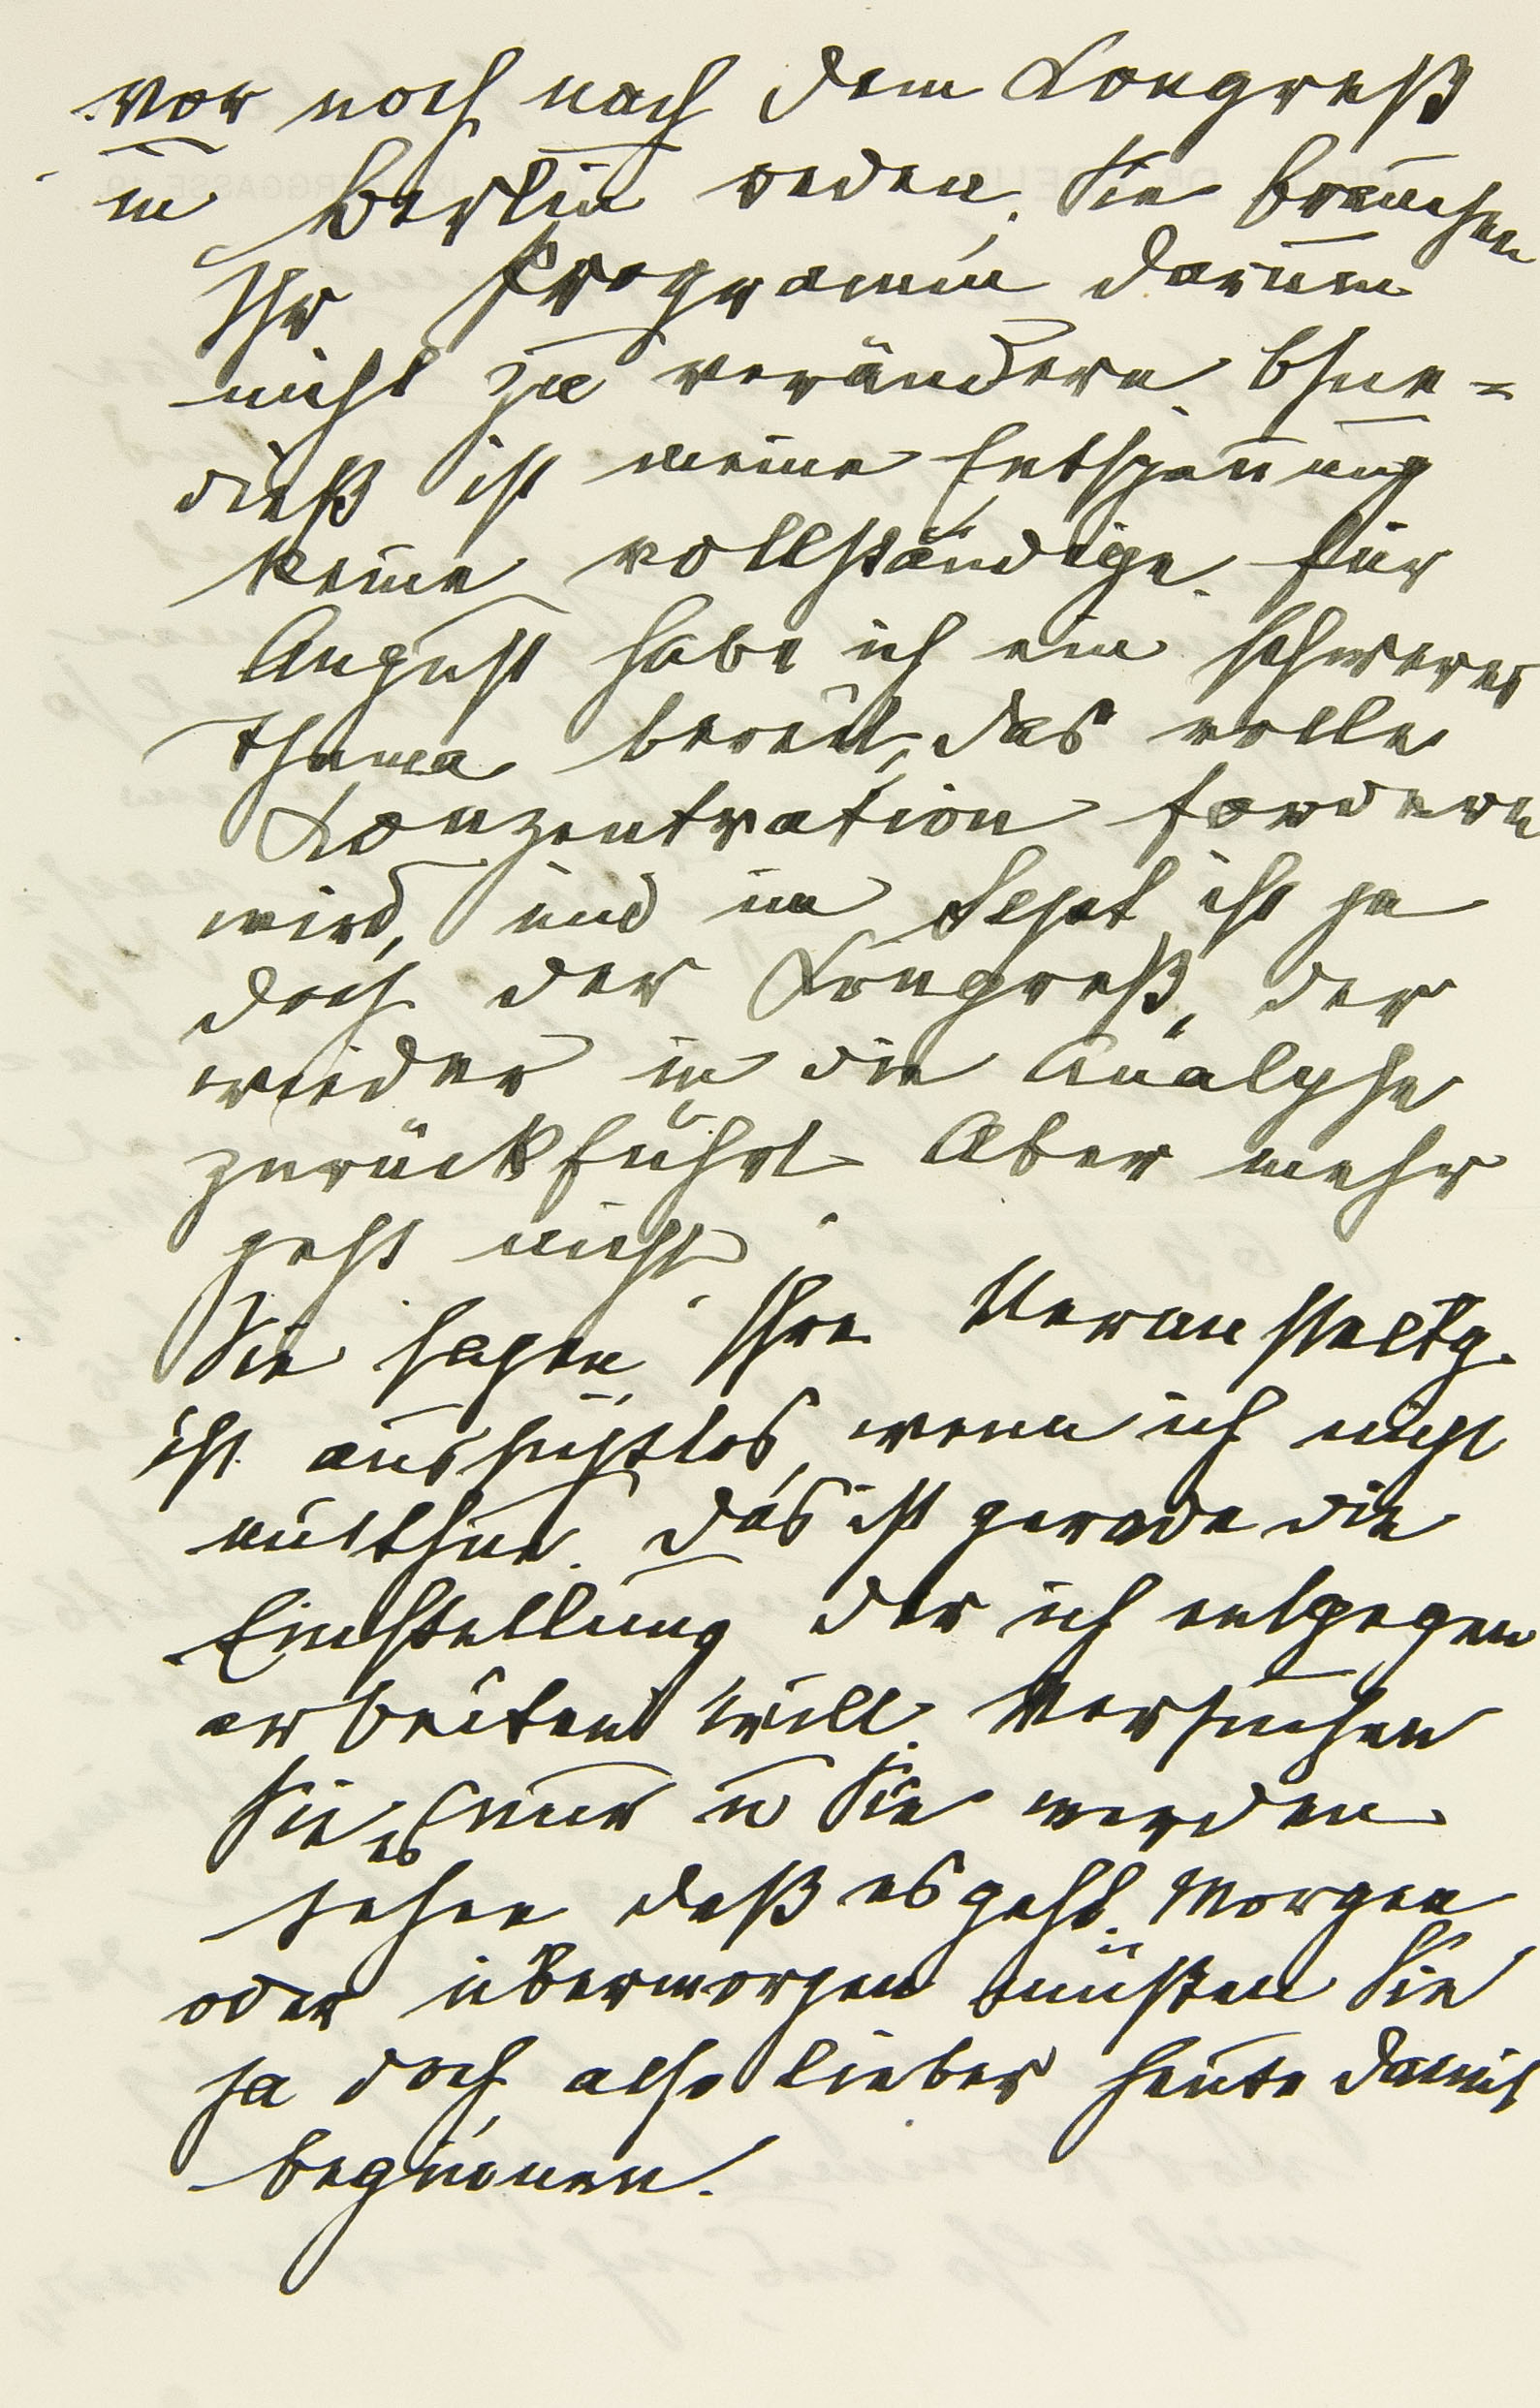 vor noch nach dem Kongreß
in Berlin reden. Sie brauchen
Ihr Programm darum
nicht zu verändern. Ohne=
dieß ist meine Entspannung
keine vollständige. Für
August habe ich ein schweres
Thema bereit, das volle
Konzentration fordern
wird, und im Sept ist ja
doch der Kongreß, der
wieder in die Analyse
zurückführt. Aber mehr
geht nicht.
Sie sagen, Ihre Veranstaltg.
ist aussichtslos, wenn ich nicht
mitthue. Das ist gerade die
Einstellung der ich entgegen
arbeiten will. Versuchen
Sie es nur u Sie werden
sehen daß es geht. Morgen
oder übermorgen müßten Sie
ja doch, also lieber heute damit
beginnen.